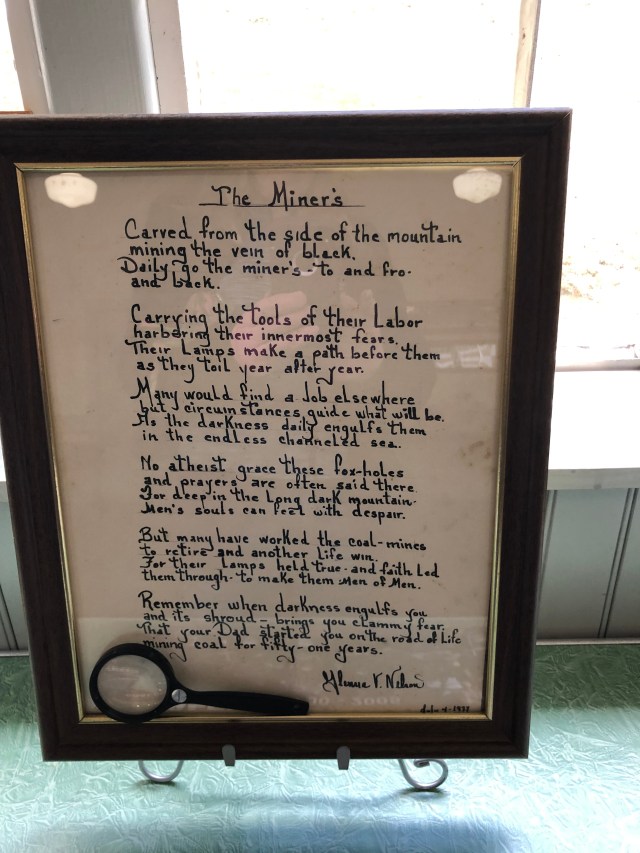 The Miner's
Carved from the side of the mountain
mining the vein of black.
Daily, go the miner's - to and fro -
and back.
Carrying the tools of their Labor
harboring their innermost fears.
Their Lamps make a path before them
as they toil year after year.
Many would find a Job elsewhere
but circumstances guide what will be.
As the darkness daily engulfs them
in the endless channeled sea.
No atheist grace these fox-holes
and prayers are often said there
For deep in the Long dark mountain -
Men's souls can feel with despair.
But many have worked the coal-mines
to retire and another Life win.
For their Lamps held true - and faith Led
them through - to make them Men of Men.
Remember when darkness engulfs you
and its shroud - brings you clammy fear.
That your Dad started you on the road of Life
mining coal for fifty-one years.
V. Nelson